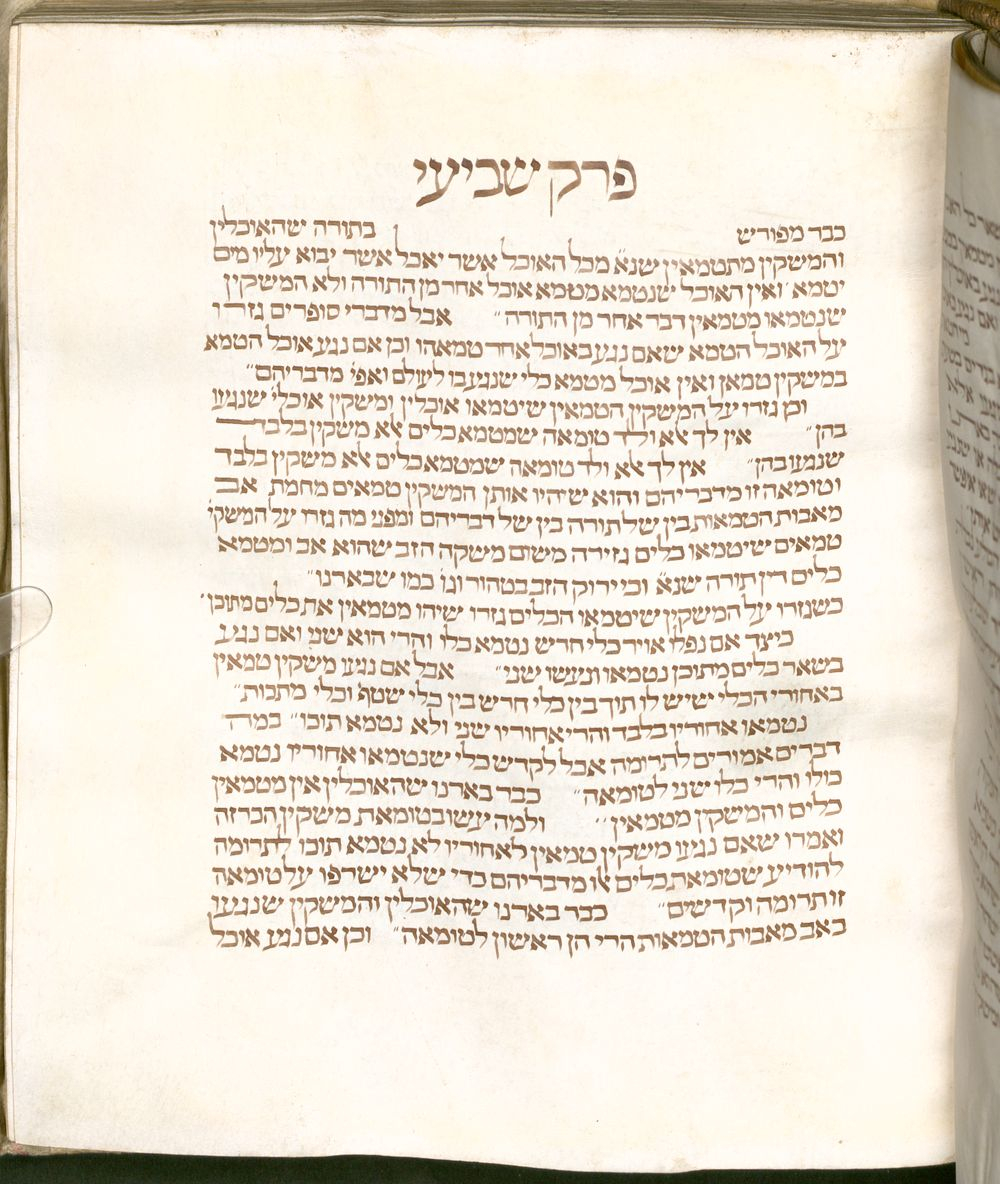 פרק שביעי
כבר מפורש בתורה שהאוכלין
והמשקין מתטמאין שנא' מכל האוכל אשר יאכל אשר יבוא עליו מים
יטמא ואין האוכל שנטמא מטמא אוכל אחר מן התורה ולא המשקין
שנטמאו מטמאין דבר אחר מן התורה" אבל מדברי סופרים גזרו
על האוכל הטמא שאם נגע באוכל אחד טמאהו וכן אם נגע אוכל הטמא
במשקין טמאן ואין אוכל מטמא כלי שנגעבו לעולם ואפי' מדבריהם"
וכן גזרו על המשקין הטמאין שיטמאו אוכלין ומשקין אוכלי' שנגעו
בהן" אין לך אלא ולד טומאה שמטמא כלים אלא משקין בלבד
שנגעו בהן" אין לך אלא ולד טומאה שמטמא כלים אלא משקין בלבד
וטומאה זו מדבריהם והוא שיהיו אותן המשקין טמאים מחמת אב
מאבות הטמאות בין של תורה בין של דבריהם ומפני מה גזרו על המשקי'
טמאים שיטמאו כלים גזירה משום משקה הזב שהוא אב ומטמא
כלים דין תורה שנא' וכי ירוק הזב בטהור וגו' כמו שבארנו"
כשגזרו על המשקין שיטמאו הכלים גזרו שיהו מטמאין את כלים מתוכן'
כיצד אם נפלו אויר כלי חרש נטמא כלו והרי הוא שני ואם נגע
בשאר כלים מתוכן נטמאו ונעשו שני" אבל אם נגעו משקין טמאין
באחורי הכלי שיש לו תוך בין כלי חרש בין כלי שטף וכלי מתכות"
נטמאו אחוריו בלבד והרי אחוריו שני ולא נטמא תוכו" במה
דברים אמורים לתרומה אבל לקדש כלי שנטמאו אחוריו נטמא
כולו והרי כלו שני לטומאה" כבר בארנו שהאוכלין אין מטמאין
כלים והמשקין מטמאין" ולמה עשו בטומאת משקין הכרזה
ואמרו שאם נגעו משקין טמאין לאחוריו לא נטמא תוכו לתרומה
להודיע שטומאת כלים אלו מדבריהם כדי שלא ישרפו על טומאה
זו תרומה וקדשים" כבר בארנו שהאוכלין והמשקין שנגעו
באב מאבות הטמאות הרי הן ראשון לטומאה" וכן אם נגע אוכל